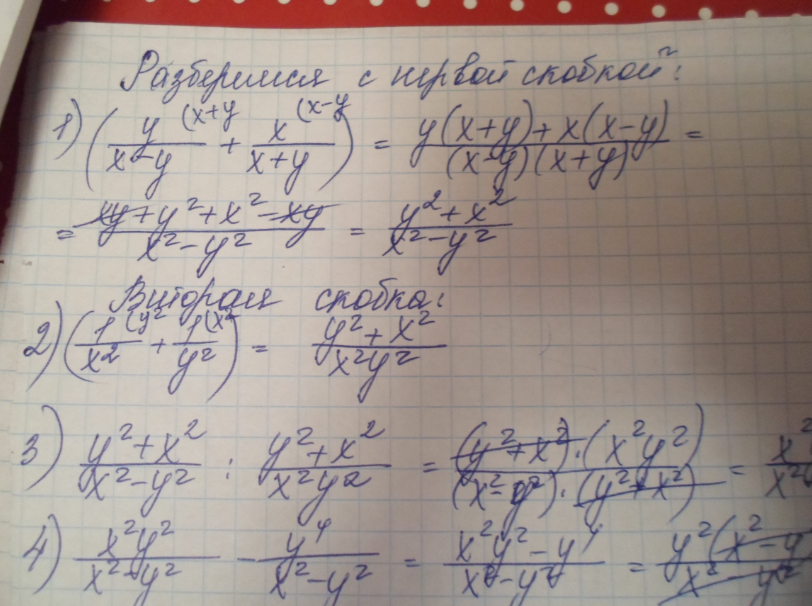 Разберемся с первой скобкой:
1) (y/(x-y) (x+y + x/(x+y) (x-y) = (y(x+y)+x(x-y))/((x-y)(x+y)) =
= (xy+y²+x²-xy)/(x²-y²) = (y²+x²)/(x²-y²)
Вторая скобка:
2) (1/x² (y² + 1/y² (x²) = (y²+x²)/(x²y²)
3) (y²+x²)/(x²-y²) : (y²+x²)/(x²y²) = ((y²+x²)·(x²y²))/((x²-y²)·(y²+x²)) = x²/x²
4) x²y²/(x²-y²) - y⁴/(x²-y²) = (x²y²-y⁴)/(x²-y²) = y²(x²-y/x² y²